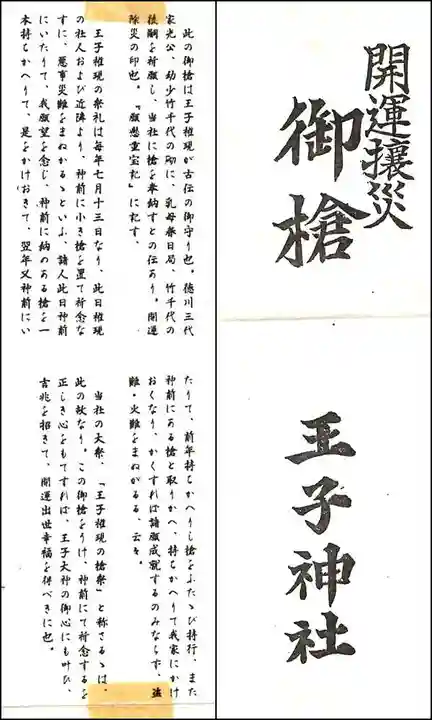 開運攘災
御槍
王子神社
此の御槍は王子権現が古伝の御守り也。徳川三代
家光公、幼少竹千代の砌に、乳母春日局、竹千代の
後嗣を祈願し、当社に槍を奉納すとの伝あり。開運
除災の印也。『願懸重宝記』に記す、
王子権現の祭礼は毎年七月十三日なり、此日権現
の社人および近隣より、神前に小き槍を置て祈念な
すに、悪事災難をまぬかるゝといふ、諸人此日神前
にいたりて、我願望を念じ、神前に納のある槍を一
本持ちかへりて、是をかけおきて、翌年又神前にい
たりて、前年持ちかへりし槍をふたゝび持行、また
神前にある槍と取りかへ、持ちかへりて我家にかけ
おくなり、かくすれば諸願成就するのみならず、盗
難・火難をまぬがるる、云々。
当社の大祭、「王子権現の槍祭」と称さるゝは、
此の故なり。この御槍をうけ、神前にて祈念するを
正しき心をもてすれば、王子大神の御心にも叶ひ、
吉兆を招きて、開運出世幸福を得べきに也。